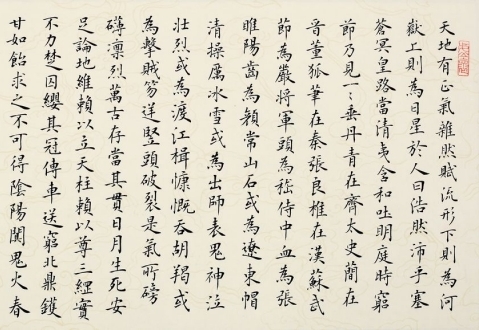 天地有正氣雜然賦流形下則為河
嶽上則為日星於人曰浩然沛乎塞
蒼冥皇路當清夷含和吐明庭時窮
節乃見一々垂丹青在齊太史簡在
晉董狐筆在秦張良椎在漢蘇武
節為嚴將軍頭為嵇侍中血為張
睢陽齒為顏常山舌或為遼東帽
清操厲冰雪或為出師表鬼神泣
壯烈或為渡江楫慷慨吞胡羯或
為擊賊笏逆豎頭破裂是氣所磅
礴凜烈萬古存當其貫日月生死安
足論地維賴以立天柱賴以尊三綱實
不力楚囚纓其冠傳車送窮北鼎鑊
甘如飴求之不可得陰陽闃鬼火春